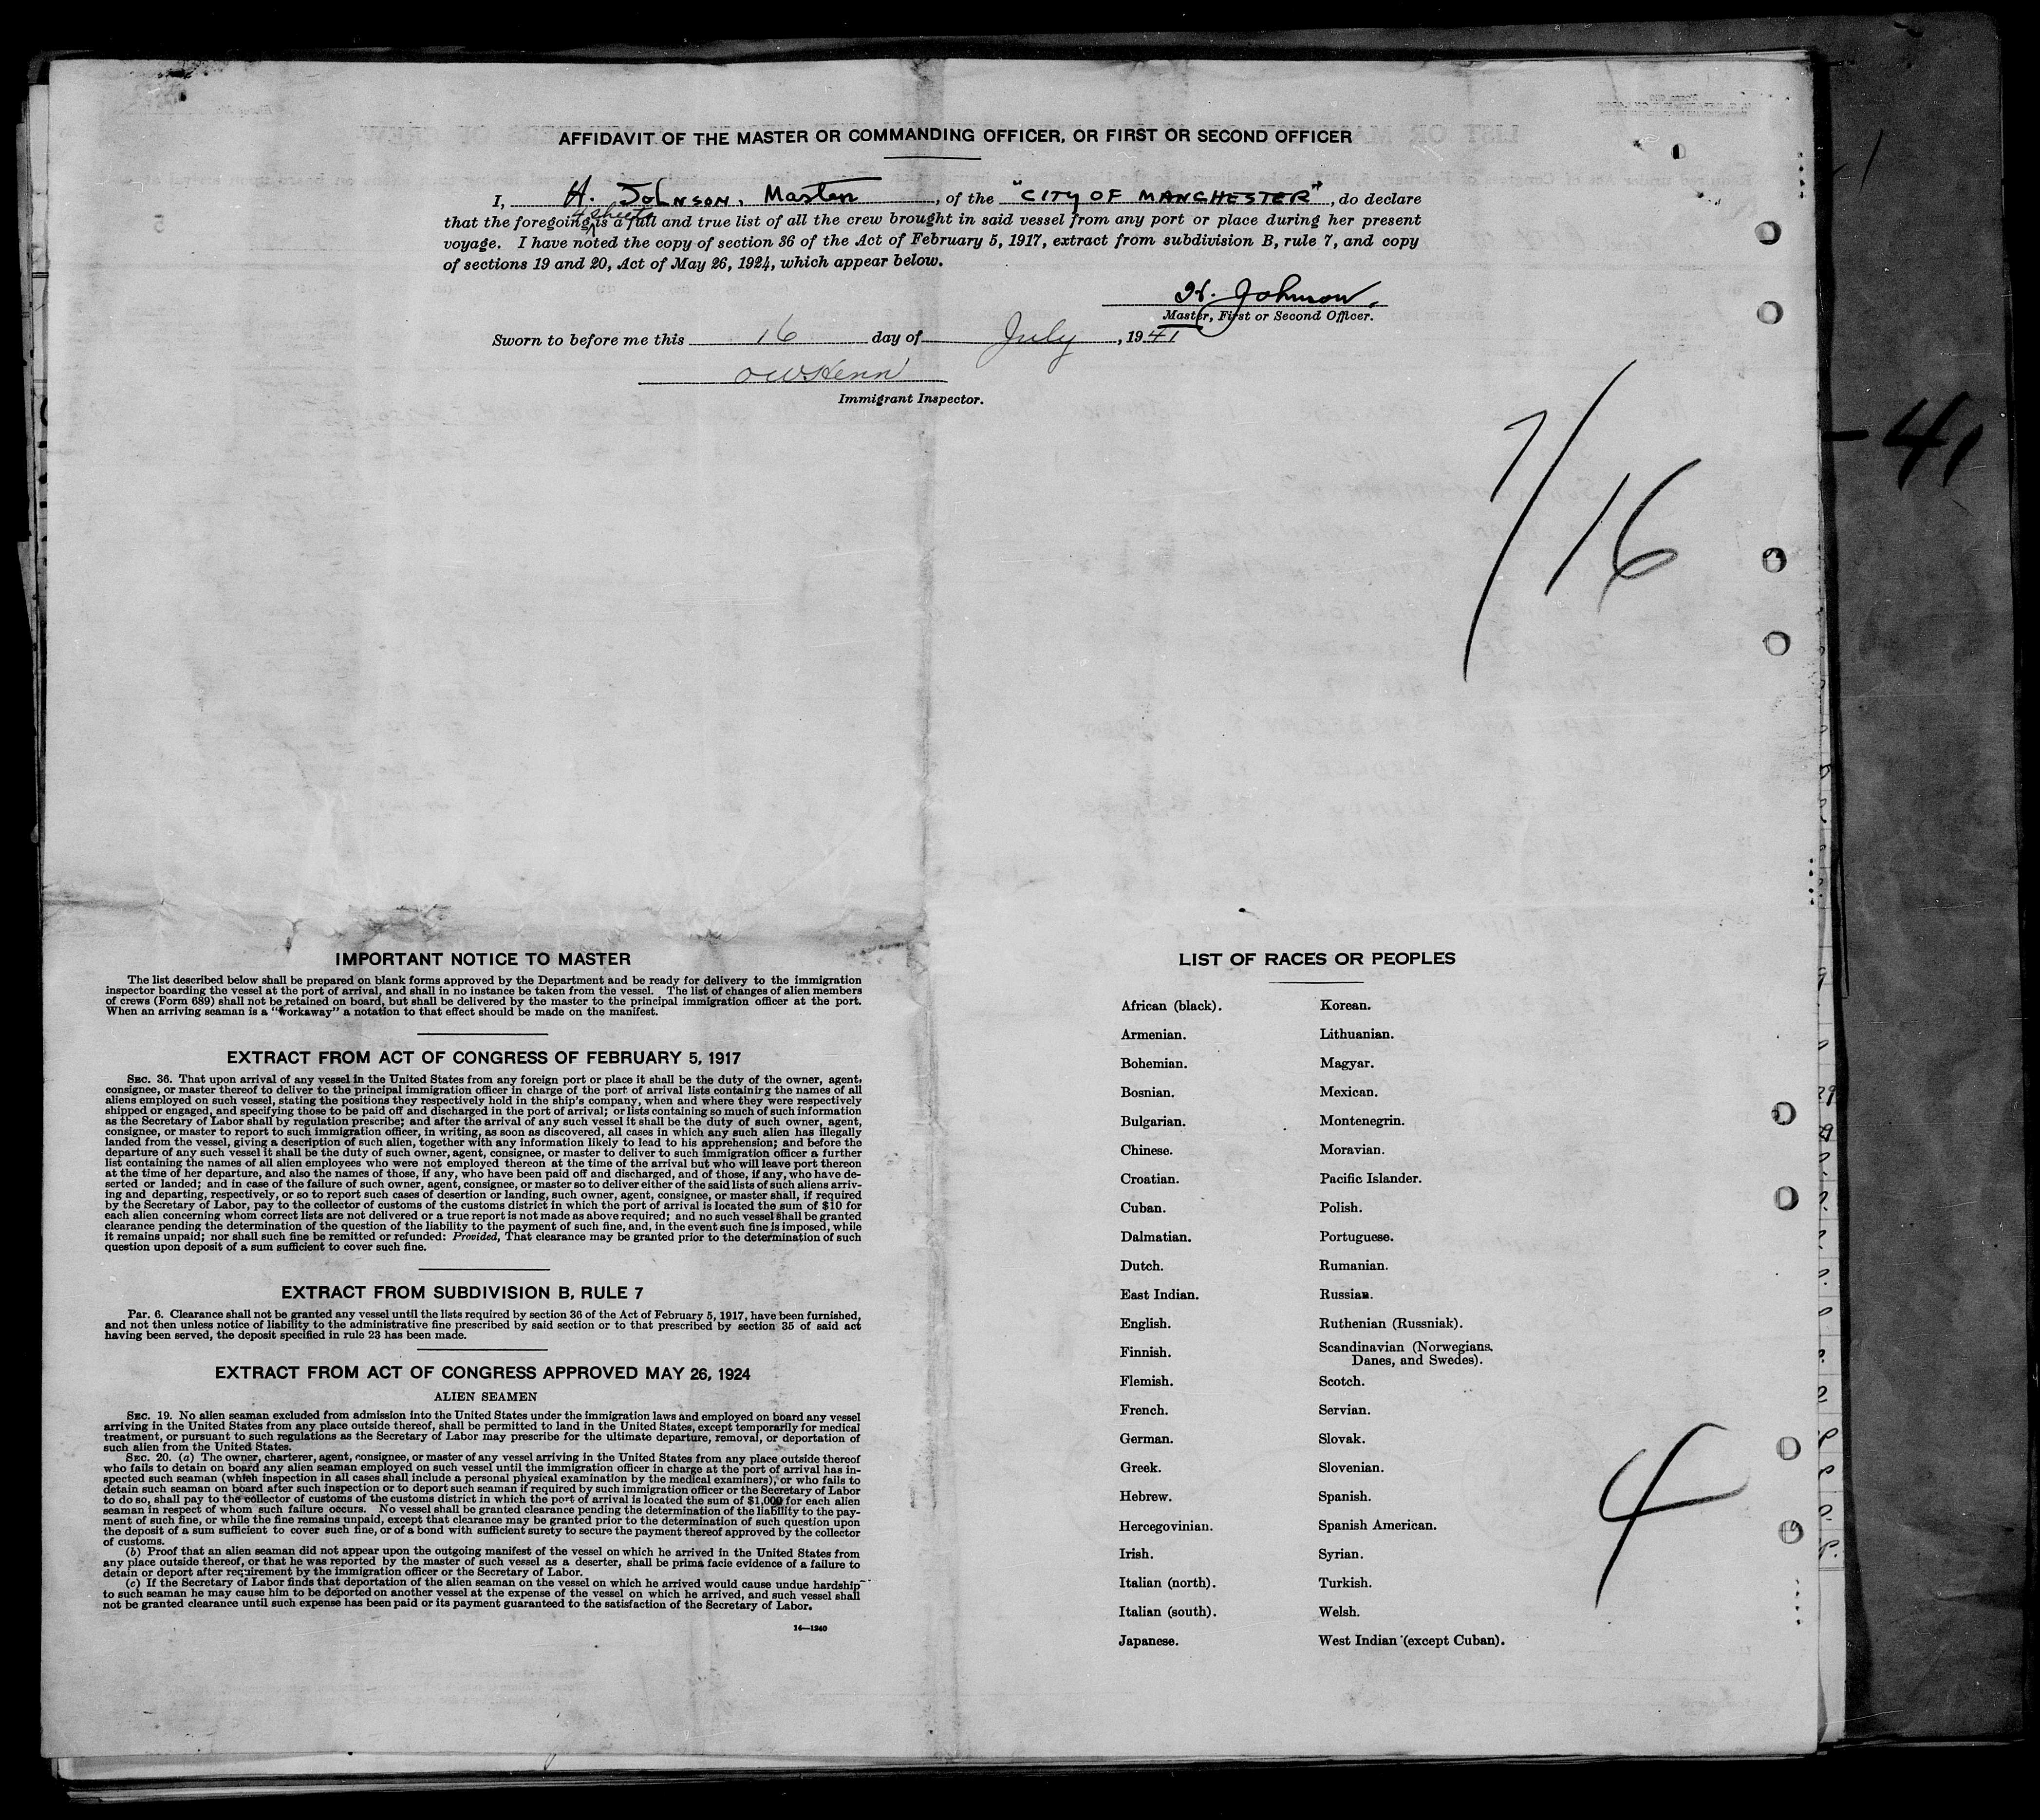 AFFIDAVIT OF THE MASTER OR COMMANDING OFFICER, OR FIRST OR SECOND OFFICER
I, H. Johnson, Master, of the "CITY OF MANCHESTER", do declare
4 sheets
that the foregoing is a full and true list of all the crew brought in said vessel from any port or place during her present
voyage. I have noted the copy of section 36 of the Act of February 5, 1917, extract from subdivision B, rule 7, and copy
of sections 19 and 20, Act of May 26, 1924, which appear below.
H. Johnson.
Master, First or Second Officer.
Sworn to before me this 16 day of July, 1941
OW Henn
Immigrant Inspector.
7/16
- 41
IMPORTANT NOTICE TO MASTER
The list described below shall be prepared on blank forms approved by the Department and be ready for delivery to the immigration
inspector boarding the vessel at the port of arrival, and shall in no instance be taken from the vessel. The list of changes of alien members
of crews (Form 689) shall not be retained on board, but shall be delivered by the master to the principal immigration officer at the port.
When an arriving seaman is a "workaway" a notation to that effect should be made on the manifest.
EXTRACT FROM ACT OF CONGRESS OF FEBRUARY 5, 1917
SEC. 36. That upon arrival of any vessel in the United States from any foreign port or place it shall be the duty of the owner, agent,
consignee, or master thereof to deliver to the principal immigration officer in charge of the port of arrival lists containing the names of all
aliens employed on such vessel, stating the positions they respectively hold in the ship's company, when and where they were respectively
shipped or engaged, and specifying those to be paid off and discharged in the port of arrival; or lists containing so much of such information
as the Secretary of Labor shall by regulation prescribe; and after the arrival of any such vessel it shall be the duty of such owner, agent,
consignee, or master to report to such immigration officer, in writing, as soon as discovered, all cases in which any such alien has illegally
landed from the vessel, giving a description of such alien, together with any information likely to lead to his apprehension; and before the
departure of any such vessel it shall be the duty of such owner, agent, consignee, or master to deliver to such immigration officer a further
list containing the names of all alien employees who were not employed thereon at the time of the arrival but who will leave port thereon
at the time of her departure, and also the names of those, if any, who have been paid off and discharged, and of those, if any, who have de-
serted or landed; and in case of the failure of such owner, agent, consignee, or master so to deliver either of the said lists of such aliens arriv-
ing and departing, respectively, or so to report such cases of desertion or landing, such owner, agent, consignee, or master shall, if required
by the Secretary of Labor, pay to the collector of customs of the customs district in which the port of arrival is located the sum of $10 for
each alien concerning whom correct lists are not delivered or a true report is not made as above required; and no such vessel shall be granted
clearance pending the determination of the question of the liability to the payment of such fine, and, in the event such fine is imposed, while
it remains unpaid; nor shall such fine be remitted or refunded: Provided, That clearance may be granted prior to the determination of such
question upon deposit of a sum sufficient to cover such fine.
EXTRACT FROM SUBDIVISION B, RULE 7
Par. 6. Clearance shall not be granted any vessel until the lists required by section 36 of the Act of February 5, 1917, have been furnished,
and not then unless notice of liability to the administrative fine prescribed by said section or to that prescribed by section 35 of said act
having been served, the deposit specified in rule 23 has been made.
EXTRACT FROM ACT OF CONGRESS APPROVED MAY 26, 1924
ALIEN SEAMEN
SEC. 19. No alien seaman excluded from admission into the United States under the immigration laws and employed on board any vessel
arriving in the United States from any place outside thereof, shall be permitted to land in the United States, except temporarily for medical
treatment, or pursuant to such regulations as the Secretary of Labor may prescribe for the ultimate departure, removal, or deportation of
such alien from the United States.
SEC. 20. (a) The owner, charterer, agent, consignee, or master of any vessel arriving in the United States from any place outside thereof
who fails to detain on board any alien seaman employed on such vessel until the immigration officer in charge at the port of arrival has in-
spected such seaman (which inspection in all cases shall include a personal physical examination by the medical examiners), or who fails to
detain such seaman on board after such inspection or to deport such seaman if required by such immigration officer or the Secretary of Labor
to do so, shall pay to the collector of customs of the customs district in which the port of arrival is located the sum of $1,000 for each alien
seaman in respect of whom such failure occurs. No vessel shall be granted clearance pending the determination of the liability to the pay-
ment of such fine, or while the fine remains unpaid, except that clearance may be granted prior to the determination of such question upon
the deposit of a sum sufficient to cover such fine, or of a bond with sufficient surety to secure the payment thereof approved by the collector
of customs.
(b) Proof that an alien seaman did not appear upon the outgoing manifest of the vessel on which he arrived in the United States from
any place outside thereof, or that he was reported by the master of such vessel as a deserter, shall be prima facie evidence of a failure to
detain or deport after requirement by the immigration officer or the Secretary of Labor.
(c) If the Secretary of Labor finds that deportation of the alien seaman on the vessel on which he arrived would cause undue hardship
to such seaman he may cause him to be deported on another vessel at the expense of the vessel on which he arrived, and such vessel shall
not be granted clearance until such expense has been paid or its payment guaranteed to the satisfaction of the Secretary of Labor.
14—1240
LIST OF RACES OR PEOPLES
African (black). Korean.
Armenian. Lithuanian.
Bohemian. Magyar.
Bosnian. Mexican.
Bulgarian. Montenegrin.
Chinese. Moravian.
Croatian. Pacific Islander.
Cuban. Polish.
Dalmatian. Portuguese.
Dutch. Rumanian.
East Indian. Russian.
English. Ruthenian (Russniak).
Finnish. Scandinavian (Norwegians,
Danes, and Swedes).
Flemish. Scotch.
French. Servian.
German. Slovak.
Greek. Slovenian.
Hebrew. Spanish.
Hercegovinian. Spanish American.
Irish. Syrian.
Italian (north). Turkish.
Italian (south). Welsh.
Japanese. West Indian (except Cuban).
4